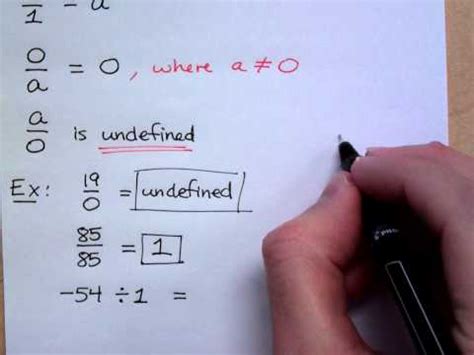 1 = a
0/a = 0, where a ≠ 0
a/0 is undefined
Ex: 19/0 = undefined
85/85 = 1
-54 ÷ 1 =